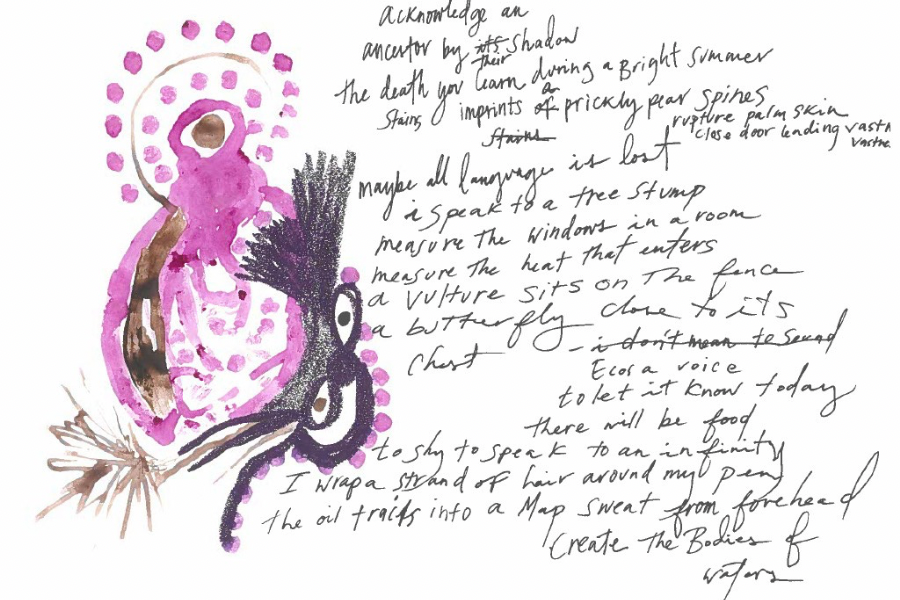 acknowledge an
ancestor by its shadow
their
the death you learn during a Bright summer
an
Stains imprints of prickly pear spines
Stains
rupture palm skin
close door leading vastn
vastne
maybe all language is lost
i speak to a tree stump
measure the windows in a room
measure the heat that enters
a vulture sits on the fence
a butterfly close to its
chest
- i don't mean to sound
Ecos a voice
to let it know today
there will be food
to shy to speak to an infinity
I wrap a strand of hair around my pen
the oil trails into a Map sweat from forehead
Create The Bodies of
waters